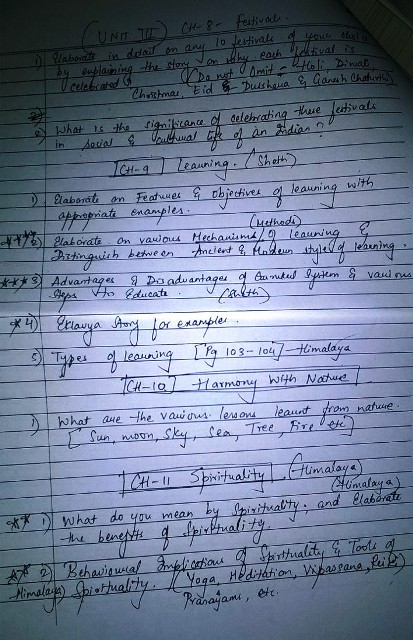 (UNIT III) CH-8- festivals.
1) Elaborate in detail on any 10 festivals of your choice
by explaining the story on why each festival is
celebrated? (Do not Omit - Holi, Diwali
Christmas, Eid & Dusshera & Ganesh Chaturthi)
2) What is the significance of celebrating these festivals
in social & cultural life of an Indian?
[CH-9] Learning. (Sheth)
1) Elaborate on Features & Objectives of learning with
appropriate examples.
(Methods)
*** 2) Elaborate on various Mechanisms of learning &
Distinguish between Ancient & Modern style of learning.
*** 3) Advantages & Disadvantages of Gurukul System & various
steps to Educate. (Sheth)
* 4) Eklavya Story for example.
5) Types of learning [Pg 103-104] - Himalaya
[CH-10] Harmony With Nature
1) What are the various lessons learnt from nature.
[Sun, moon, Sky, Sea, Tree, Fire etc]
[CH-11 Spirituality]. (Himalaya)
(Himalaya)
** 1) What do you mean by Spirituality, and Elaborate
the benefits of Spirituality.
** 2) Behavioural Implications of Spirituality & Tools of
Himalaya) Spirituality. (Yoga, Meditation, Vipassana, Reiki)
Pranayam, etc.